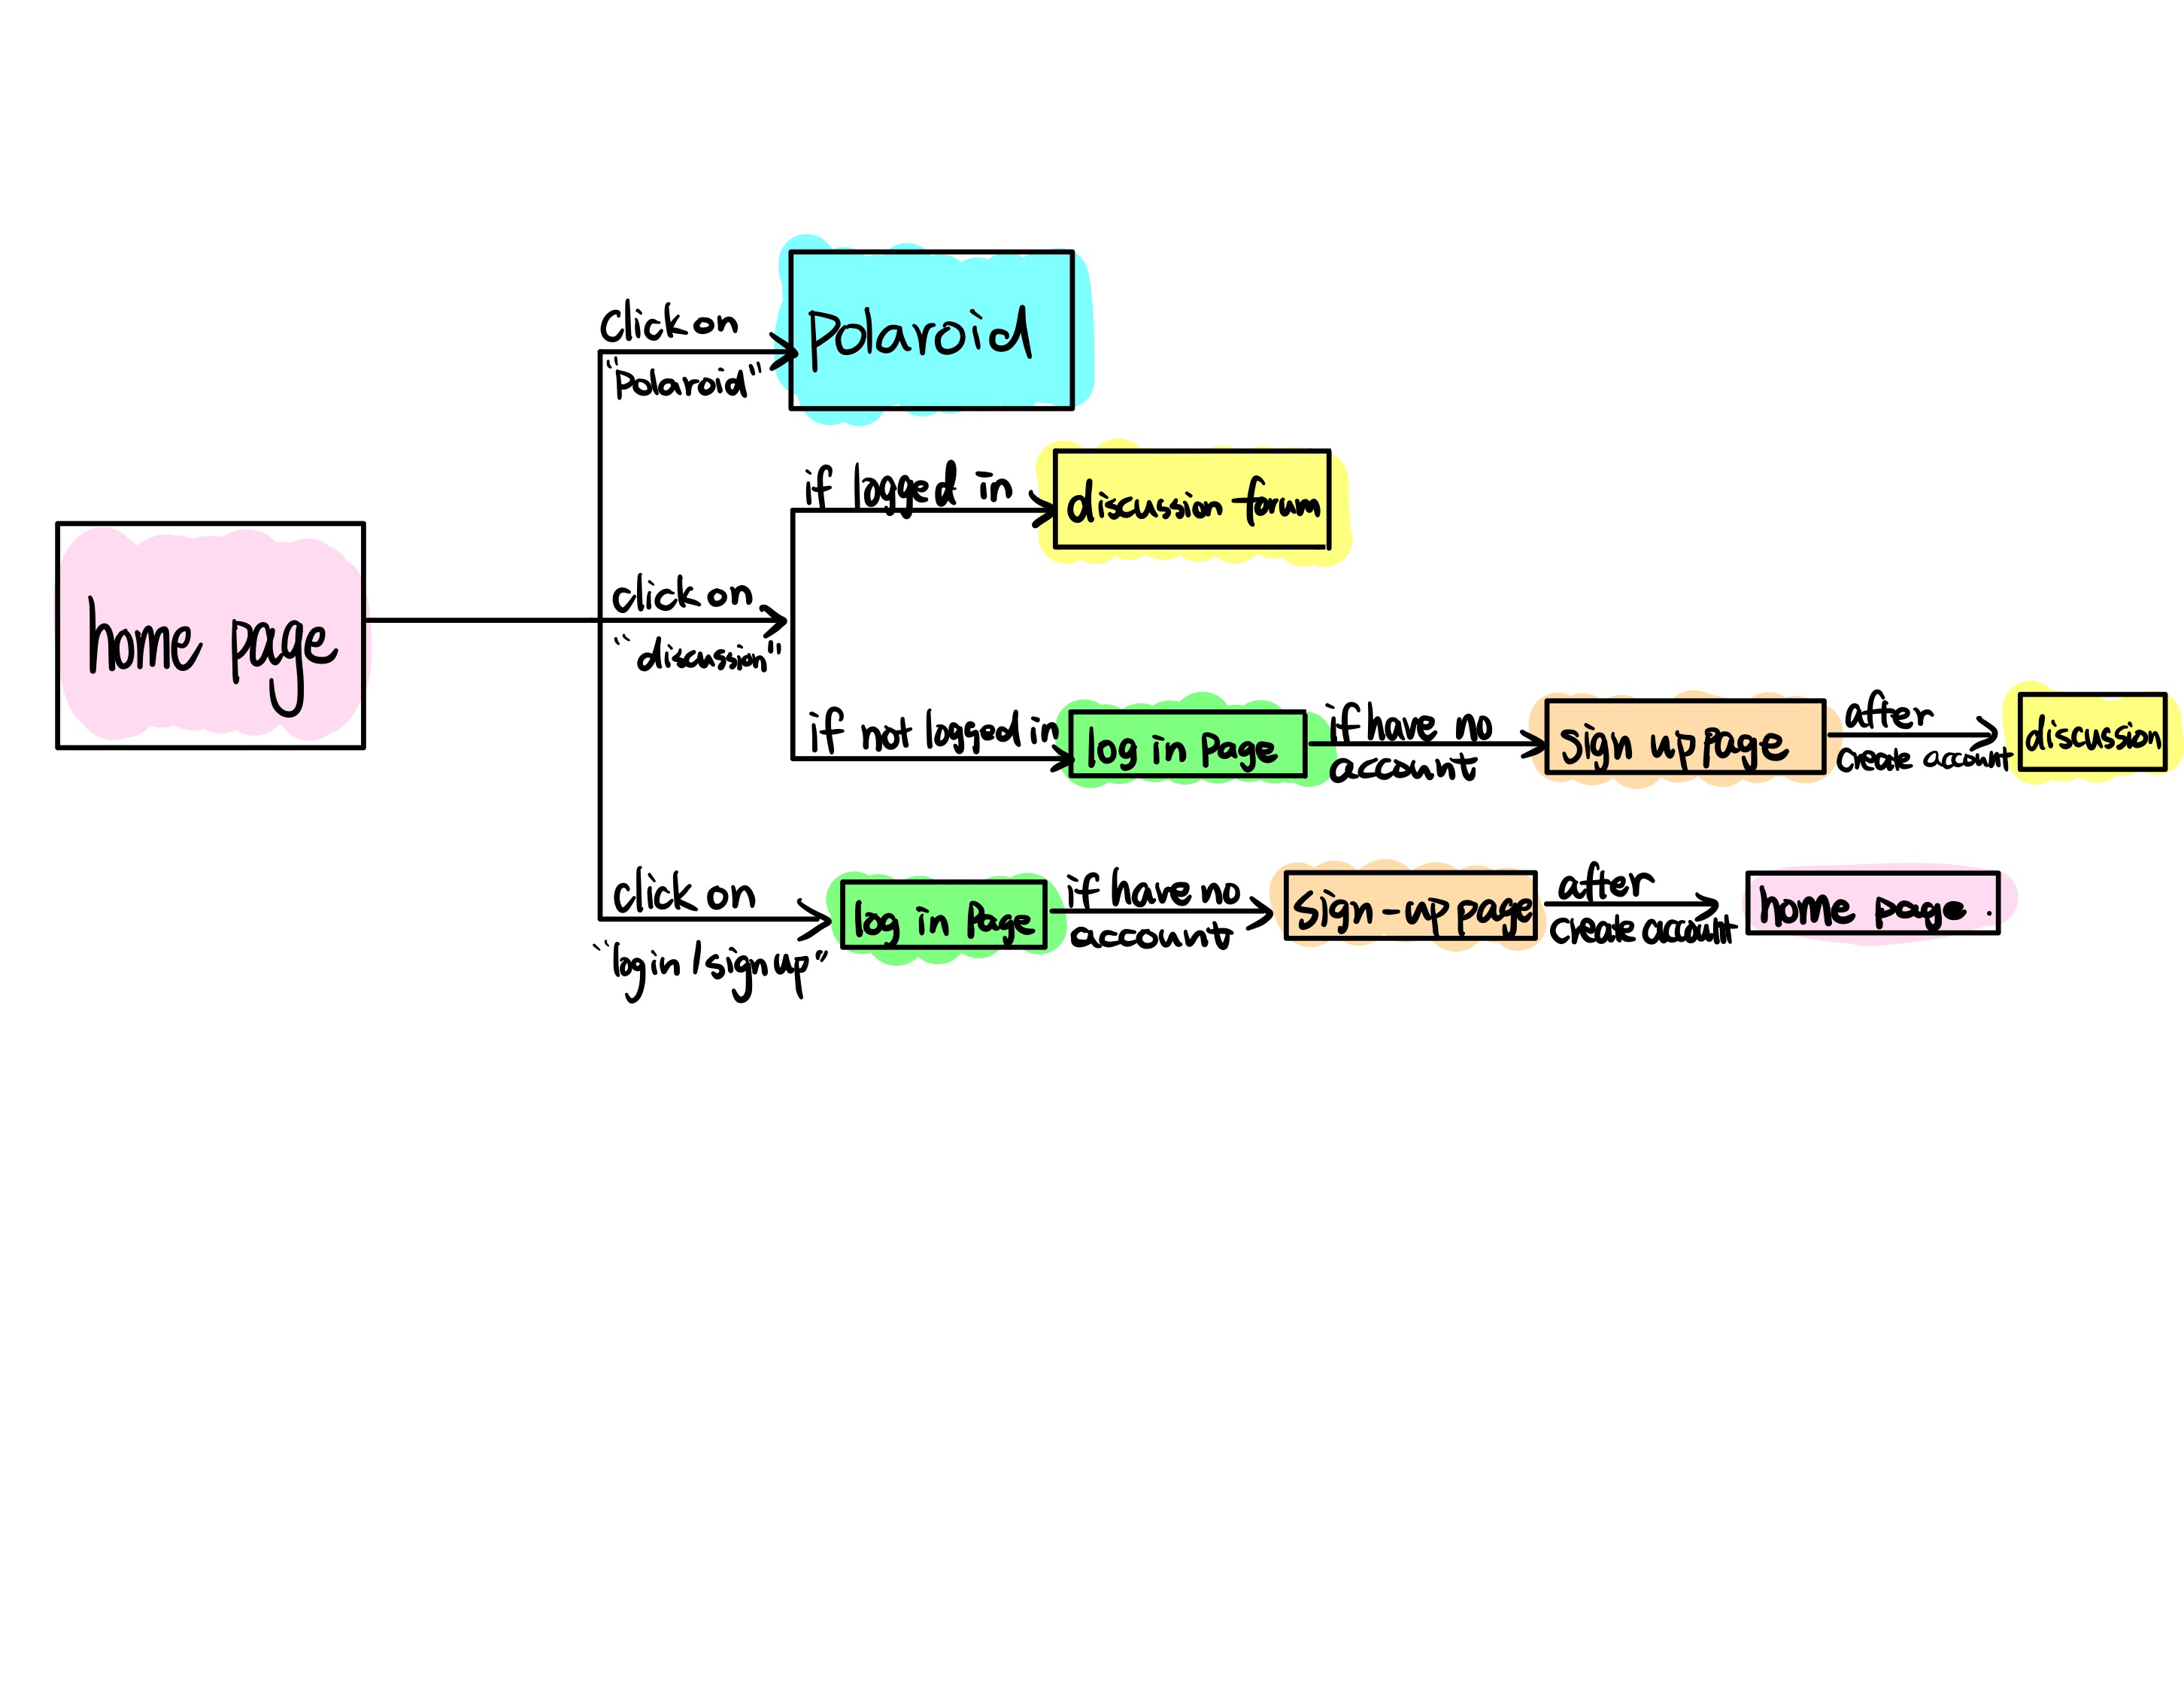 home page
click on
"Polaroid"
Polaroid
if logged in
discussion forum
click on
"discussion"
if not logged in
log in page
if have no
account
sign up page
after
create account
discussion
click on
"login / sign up"
log in Page
if have no
account
sign-up page
after
create account
home page.